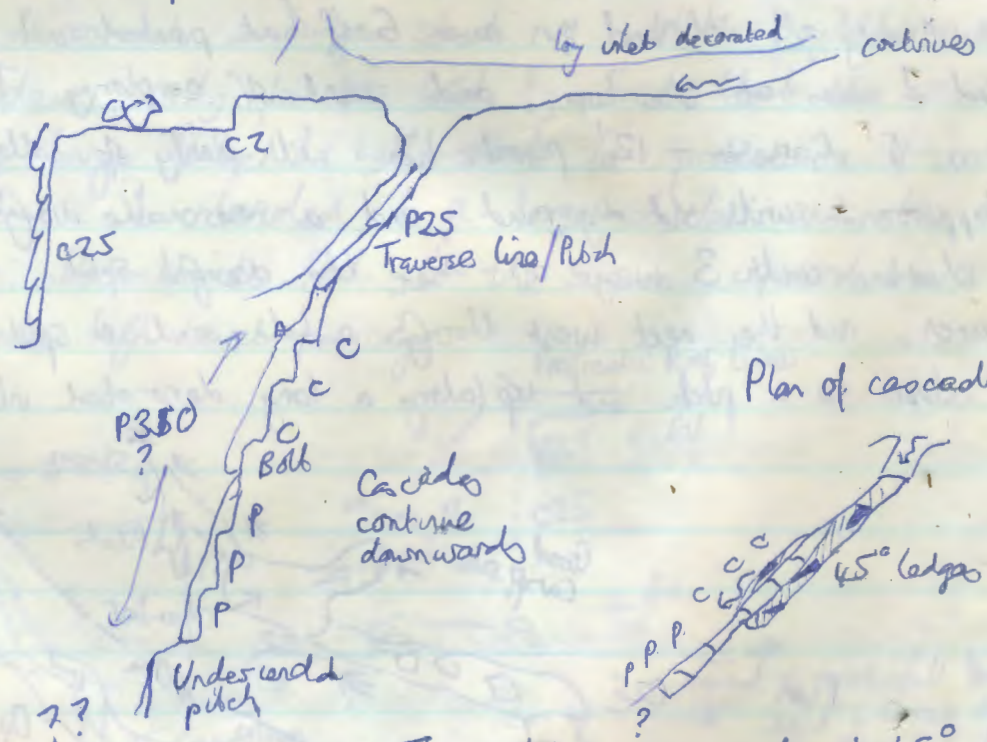 by inlet decorated
continues
C2
C25
P25
Traverse line/Pitch
C
C
C
P350
?
Bolt
Cascades
continue
downwards
P
P
P
Undescended
pitch
??
Plan of cascad
75
C C
C
45° ledges
P P P.
?
45°